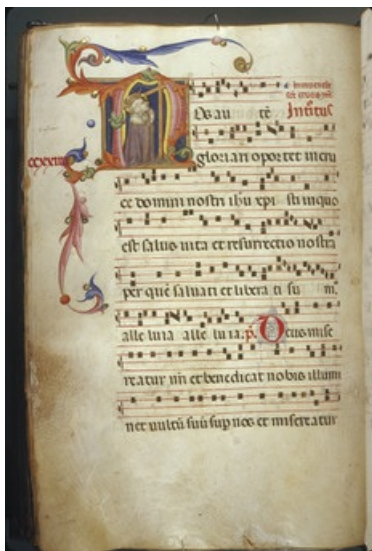 Introitus
os au tē
gloriari oportet in cru
ce domini nostri ihu xpi sti in quo
est salus uita et resurrectio nostra
per quē saluati et libera ti su m
alle luia alle luia. ps. Deus mise
reatur nr̄i et benedicat nobis illumi
net uultū suū sup nos et misereatur